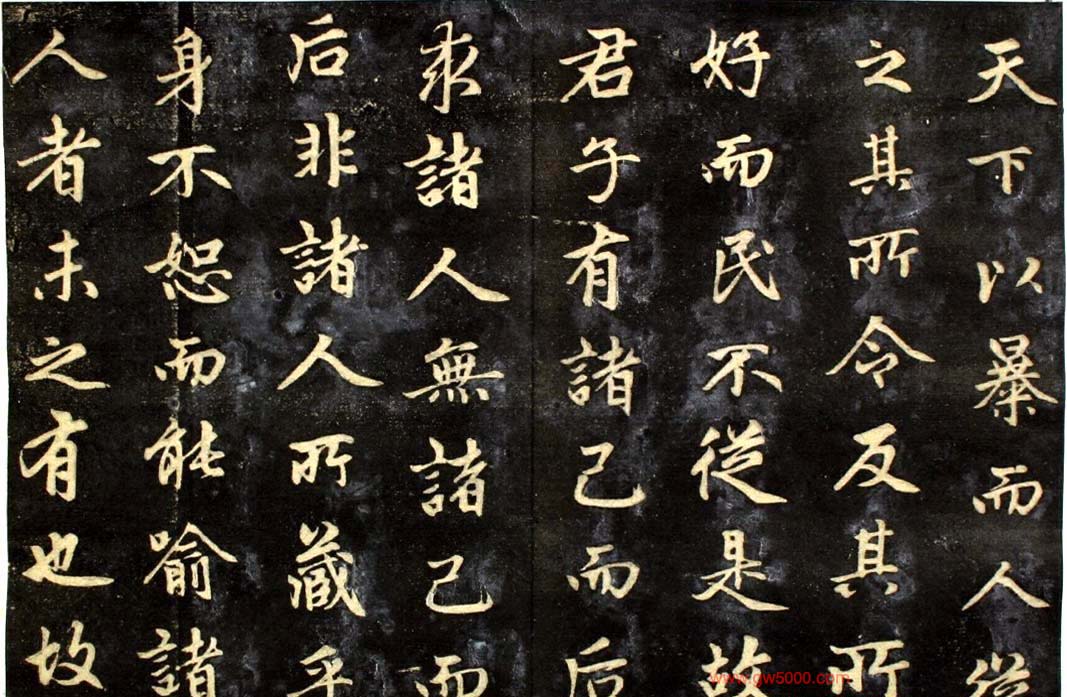 天下以暴而人從
之其所令反其所
好而民不從是故
君子有諸己而后
求諸人無諸己而
后非諸人所藏乎
身不恕而能喻諸
人者未之有也故
www.gw5000.com